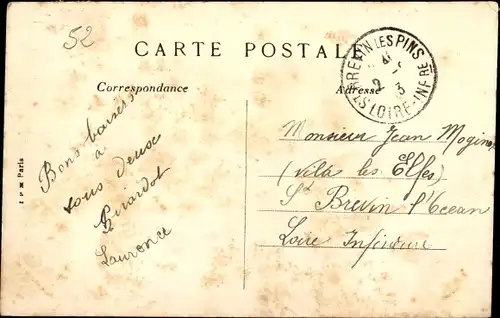 52
CARTE POSTALE
ST BREVIN LES PINS
LOIRE-INFRE
Correspondance
Adresse
Bons baisers
à
tous deux
Girardot
Laurence
Monsieur Jean
(Villa les Elfes)
St Brevin l'Océan
Loire Inférieure
Paris